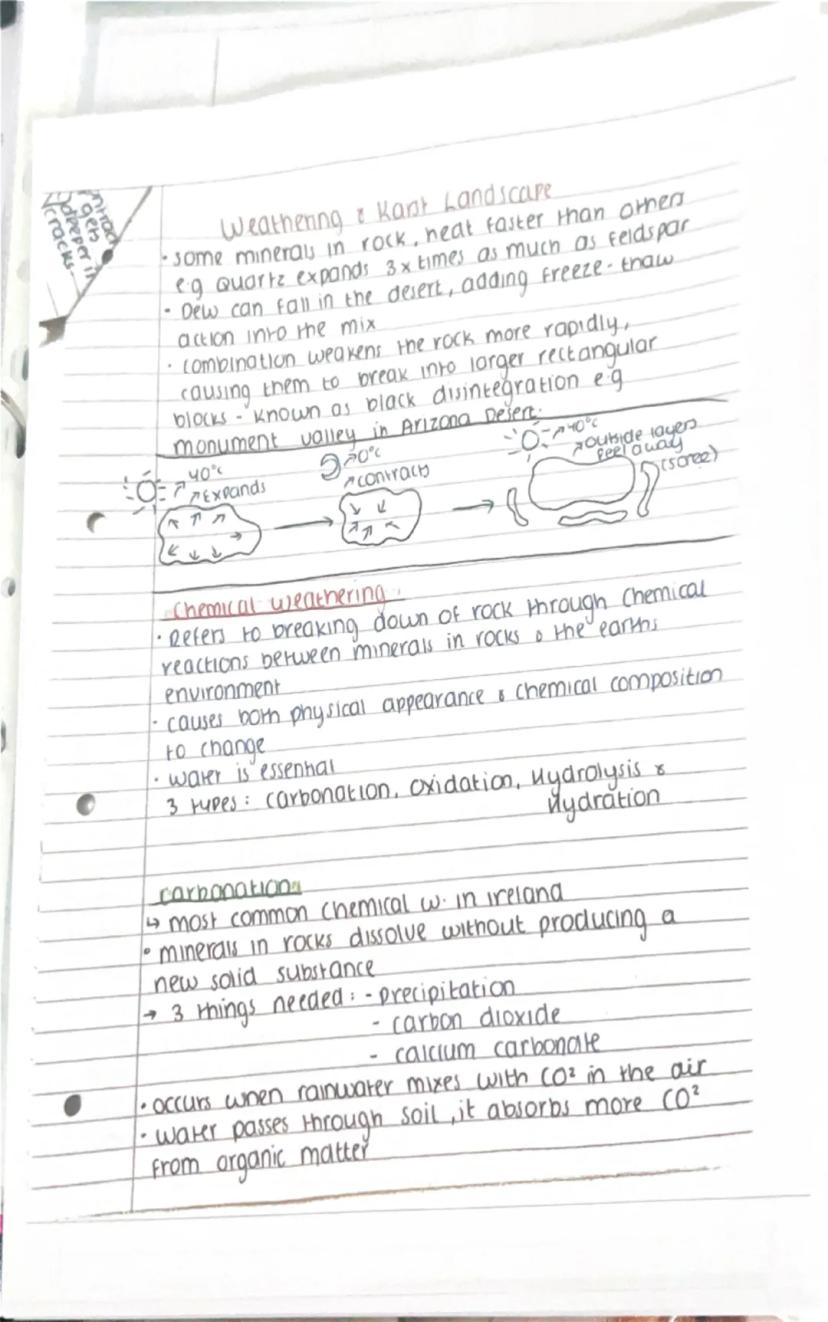 gets
deeper in
cracks.
Weathering & Karst Landscape
• some minerals in rock, heat faster than others
e.g Quartz expands 3x times as much as feldspar
• Dew can fall in the desert, adding freeze-thaw
action into the mix
• combination weakens the rock more rapidly,
causing them to break into larger rectangular
blocks - known as black disintegration e.g
monument valley in Arizona Desert.
40°c
Expands
0°c
contracts
40°c
outside layers
peel away
(scree)
Chemical weathering
• Refers to breaking down of rock through chemical
reactions between minerals in rocks & the earths
environment
• causes both physical appearance & chemical composition
to change
• water is essential
3 types: carbonation, oxidation, Hydrolysis &
Hydration
carbonation
↳ most common chemical w. in ireland
• minerals in rocks dissolve without producing a
new solid substance
→ 3 things needed: - precipitation
- carbon dioxide
- calcium carbonate
• occurs when rainwater mixes with CO² in the air
• water passes through soil, it absorbs more CO²
from organic matter